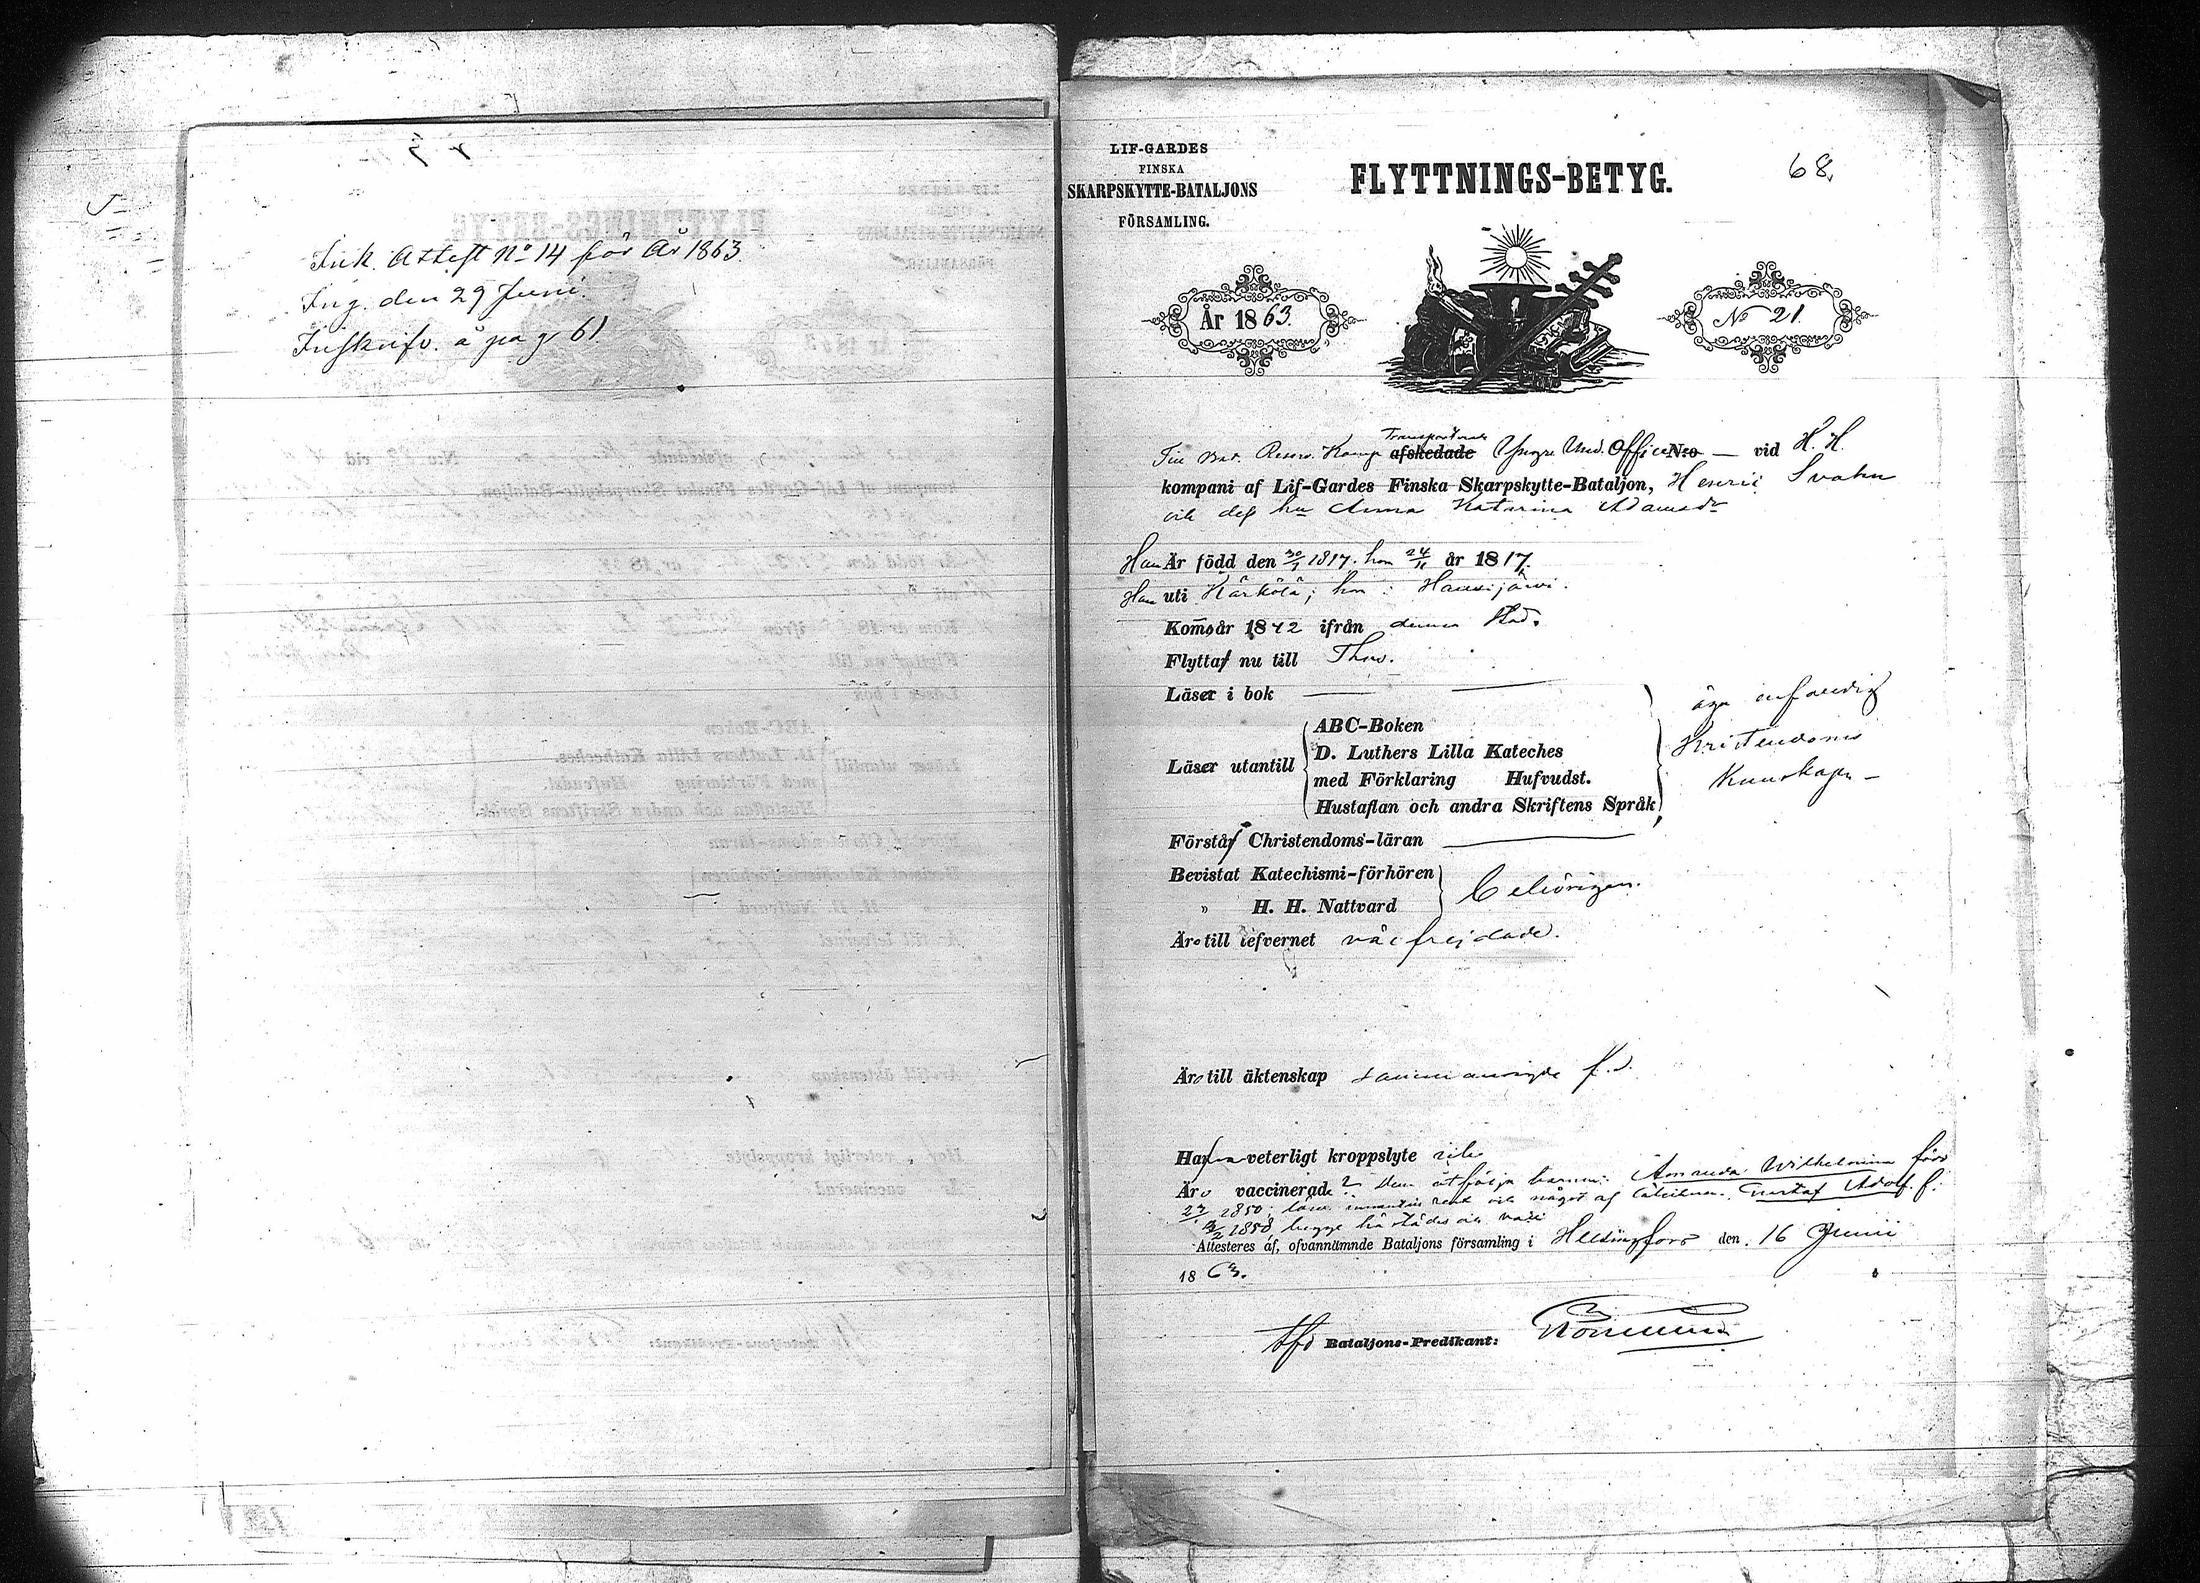 Ink. Attest No 14 för År 1863
Ing. den 29 Juni.
Inskrifv. å pag 61.
LIF-GARDES
FINSKA
SKARPSKYTTE-BATALJONS
FÖRSAMLING.
FLYTTNINGS-BETYG.
68.
År 1863.
No 21.
Transporterade
Till Bat. Reserv. Komp afskedade Yngre Und. Officer N:o — vid H. H.
kompani af Lif-Gardes Finska Skarpskytte-Bataljon, Henric Svahn
och dess hu Anna Katarina Adamsdr
Han Är född den 30/1 1817. hon 24/11 år 1817.
Han uti Kärkölä; hon: Hausjärvi.
Kom år 1842 ifrån denna Stad.
Flytta nu till Thus.
Läser i bok
Läser utantill
ABC-Boken
D. Luthers Lilla Kateches
med Förklaring Hufvudst.
Hustaflan och andra Skriftens Språk
äga enfaldig
Kristendoms
Kunskap –
Förstår Christendoms-läran
Bevistat Katechismi-förhören
" H. H. Nattvard
behörigen.
Äro till lefvernet väl frejdade.
Äro till äktenskap sammanvigde f.d.
Hafva veterligt kroppslyte
Äro vaccinerade? Dem åtfölja barnen: Amanda Wilhelmina född
1850; läser innantill rent och något af Gustaf Adolf f.
1858 begge härstädes
Attesteres af, ofvannämnde Bataljons församling i Helsingfors den 16 Junii
1863.
Bataljons-Predikant: